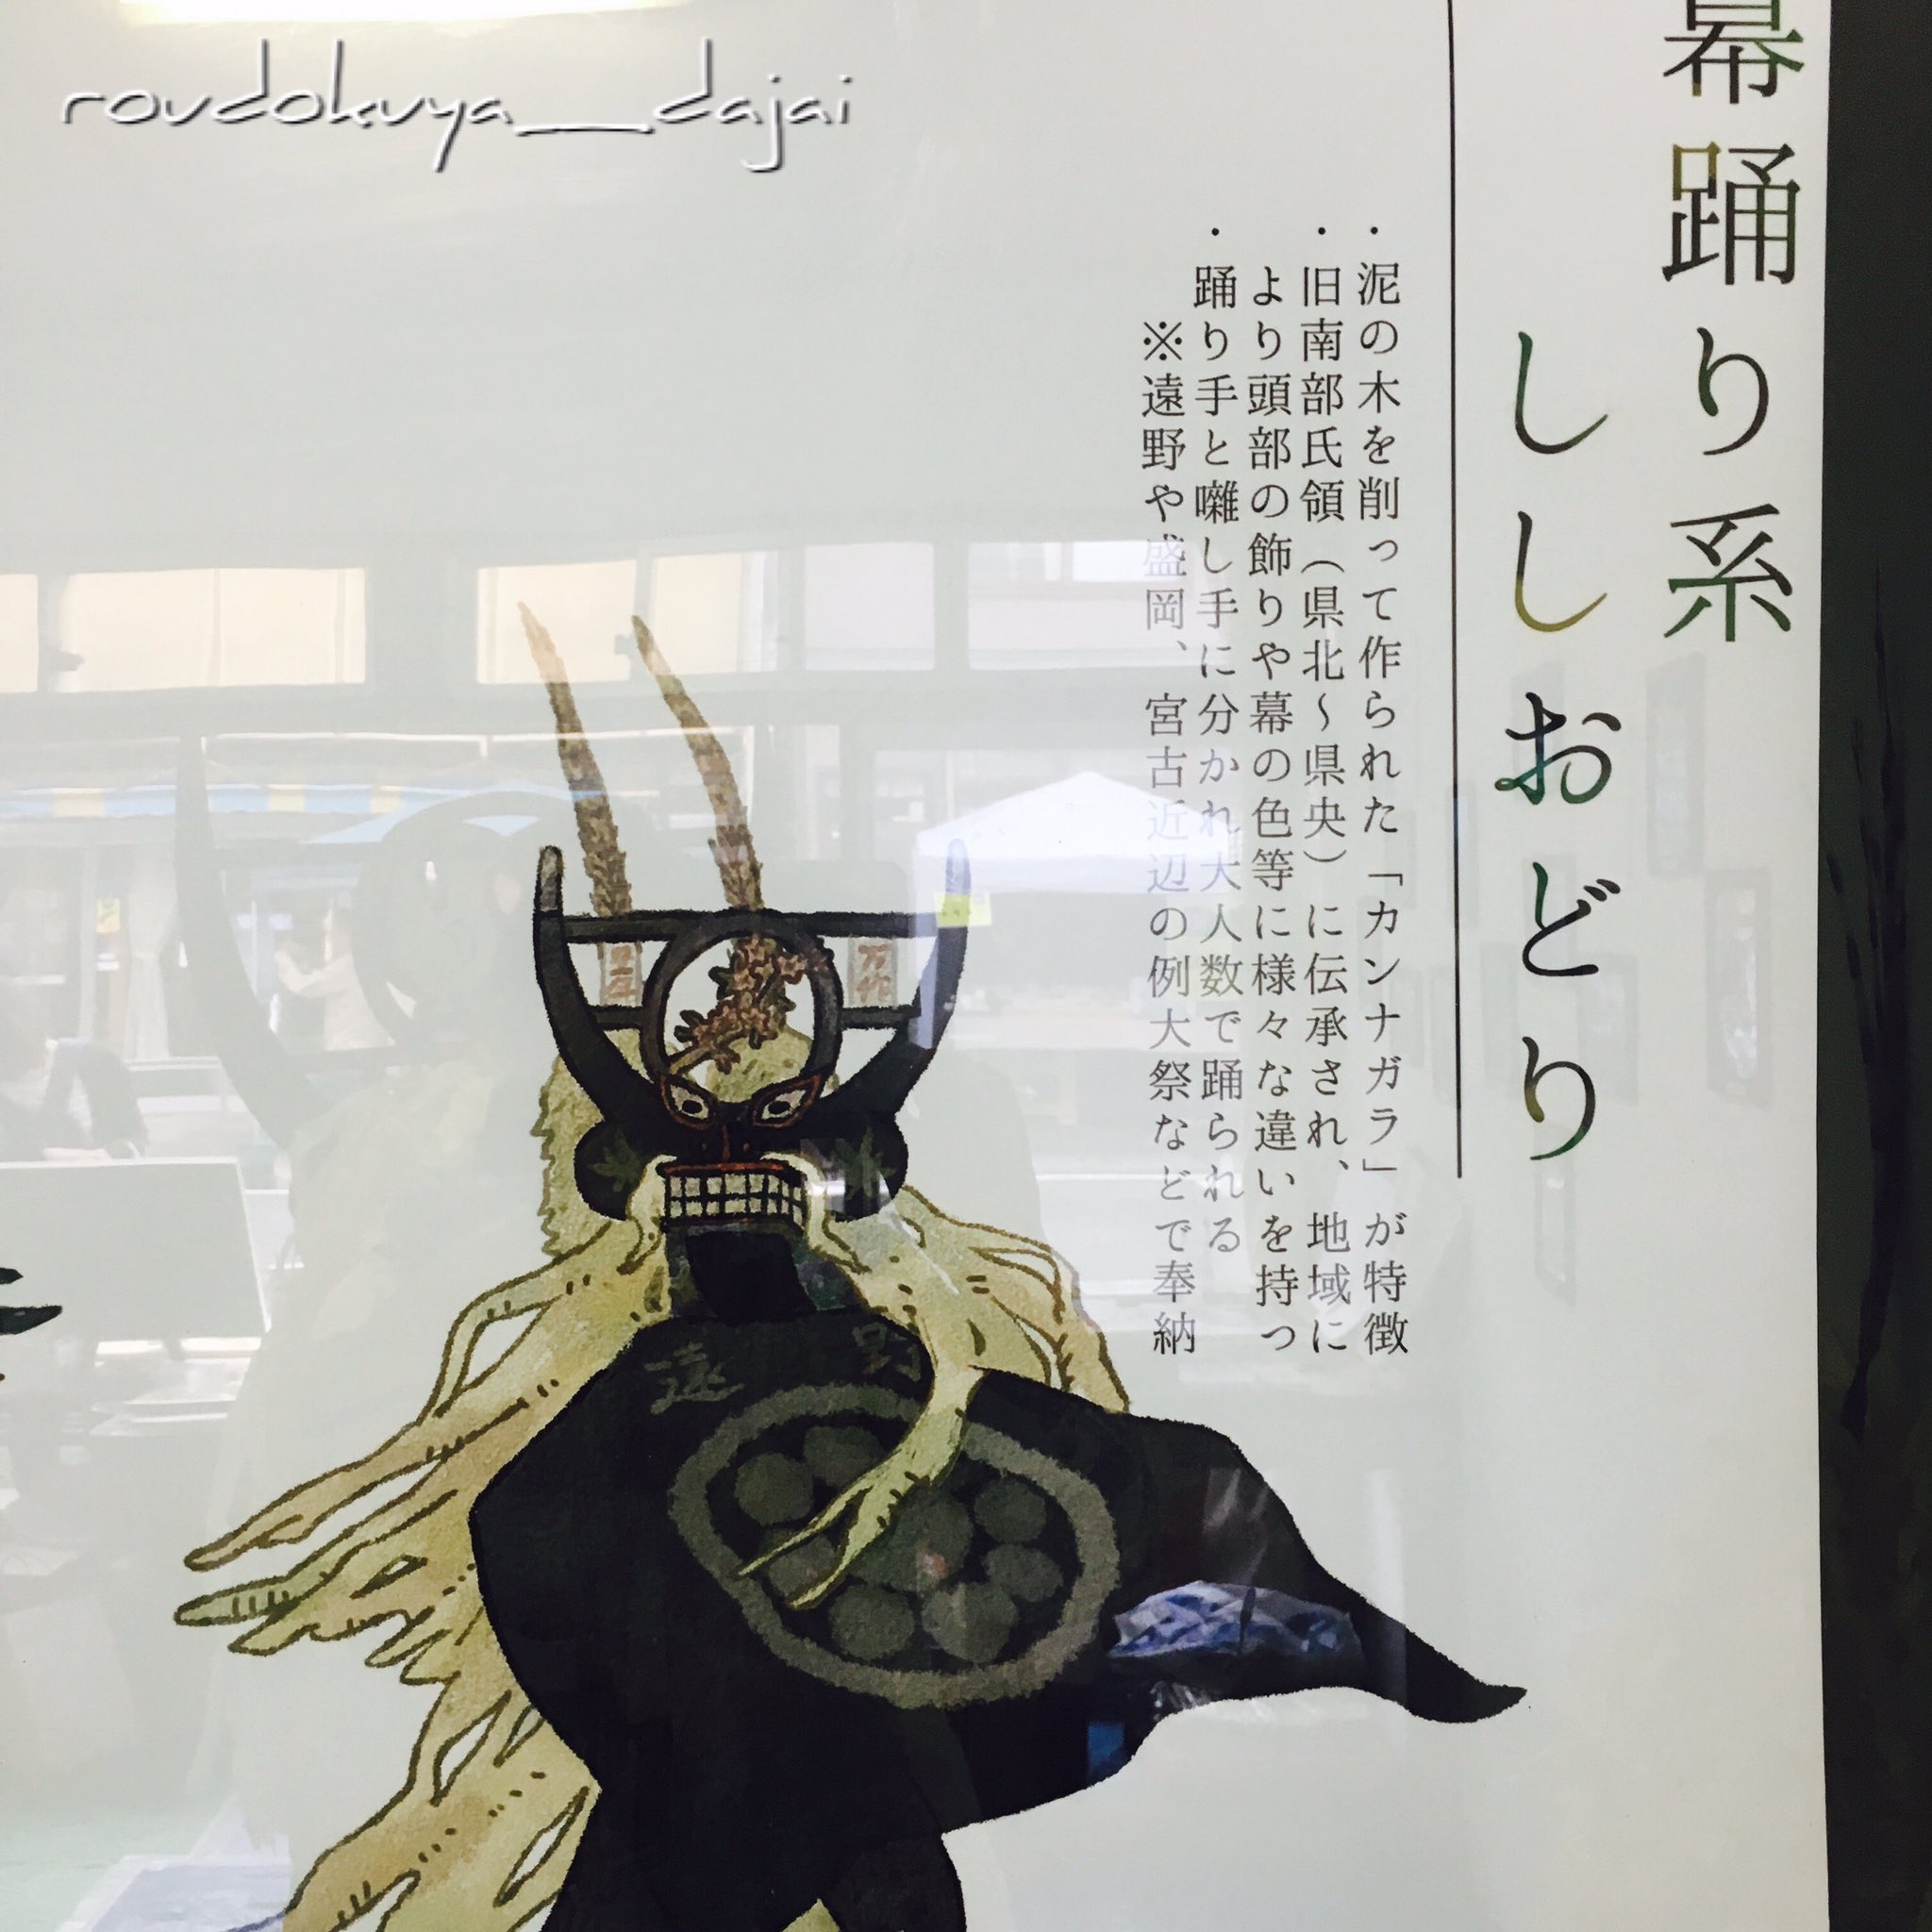 roudokuya_dajai
幕踊り系
ししおどり
・泥の木を削って作られた「カンナガラ」が特徴
・旧南部氏領（県北～県央）に伝承され、地域に
より頭部の飾りや幕の色等に様々な違いを持つ
・踊り手と囃し手に分かれ大人数で踊られる
※遠野や盛岡、宮古近辺の例大祭などで奉納
万作
遠野